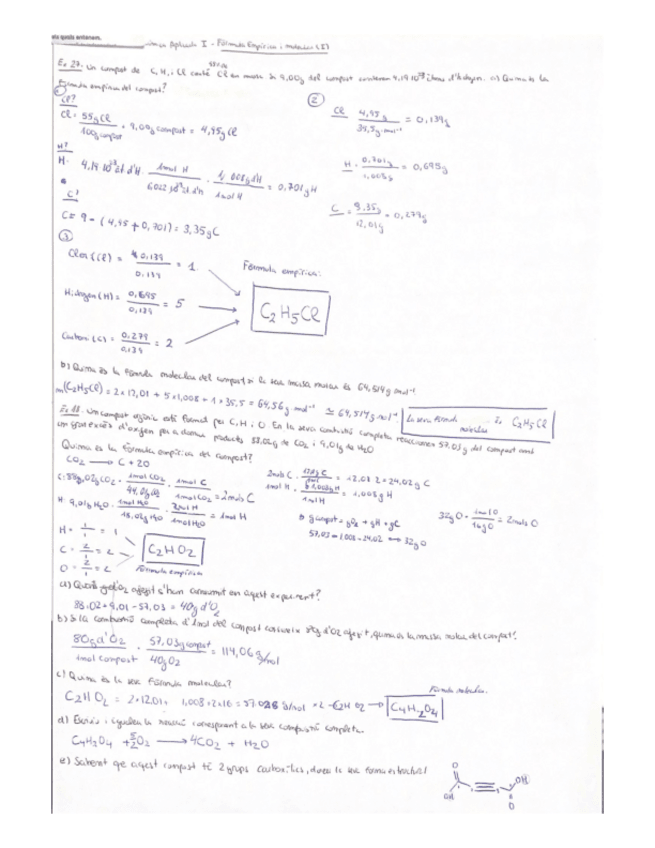 els quals entenem.
Química Aplicada I - Fórmula Empírica i molecular (I)
Ex 27. Un compost de C, H, i Cl conté 55% de Cl en massa. Si 9,00g del compost contenen 4,19·10²³ àtoms d'hidrogen. a) Quina és la
fórmula empírica del compost?
①
②
Cl?
Cl = 55g Cl / 100g compost · 9,00g compost = 4,95g Cl
Cl 4,95g / 35,5g·mol⁻¹ = 0,139
H?
H · 4,19·10²³ àt d'H · 1mol H / 6,022·10²³ àt d'H · 1,008g d'H / 1mol H = 0,701g H
H · 0,701g / 1,008g = 0,695g
C?
C = 9 - (4,95 + 0,701) = 3,35g C
C = 3,35g / 12,01g = 0,279g
③
Clor (Cl) = 0,139 / 0,139 = 1
Fórmula empírica:
Hidrogen (H) = 0,695 / 0,139 = 5
C₂H₅Cl
Carboni (C) = 0,279 / 0,139 = 2
b) Quina és la fórmula molecular del compost si la seva massa molar és 64,514g mol⁻¹
m(C₂H₅Cl) = 2×12,01 + 5×1,008 + 1×35,5 = 64,56g·mol⁻¹ ≅ 64,514g·mol⁻¹
La seva fórmula molecular és C₂H₅Cl
Un compost orgànic està format per C, H i O. En la seva combustió completa reaccionen 57,03g del compost amb
un gran excés d'oxigen per a donar productes 88,02g de CO₂ i 9,01g de H₂O
Quina és la fórmula empírica del compost?
CO₂ ⟶ C + 2O
C: 88,02g CO₂ · 1mol CO₂ / 44,01g CO₂ · 1mol C / 1mol CO₂ = 2mols C
2mols C · 12,01g C / 1mol C = 12,01·2 = 24,02g C
H: 9,01g H₂O · 1mol H₂O / 18,02g H₂O · 2mol H / 1mol H₂O = 1mol H
1mol H · 1,008g H / 1mol H = 1,008g H
g compost = gO₂ + gH + gC
57,03 = 1,008 - 24,02 ⟶ 32g O
32g O · 1mol O / 16g O = 2mols O
H = 1/1 = 1
C = 2/1 = 2
O = 2/1 = 2
C₂HO₂
Fórmula empírica
a) Quants g d'O₂ afegit s'han consumit en aquest experiment?
88,02 + 9,01 - 57,03 = 40g d'O₂
b) Si la combustió completa d'1mol del compost consumeix 80g d'O₂ afegit, quina és la massa molar del compost?
80g d'O₂ / 1mol compost · 57,03g compost / 40g O₂ = 114,06 g/mol
c) Quina és la seva fórmula molecular?
C₂HO₂ = 2·12,01 + 1,008 + 2×16 = 57,028 g/mol ×2
Fórmula molecular.
C₄H₂O₄
d) Escriu i iguala la reacció corresponent a la seva combustió completa.
C₄H₂O₄ + 5/2 O₂ ⟶ 4CO₂ + H₂O
e) Sabent que aquest compost té 2 grups carboxílics, dona la seva forma estructural
O
OH
OH
O